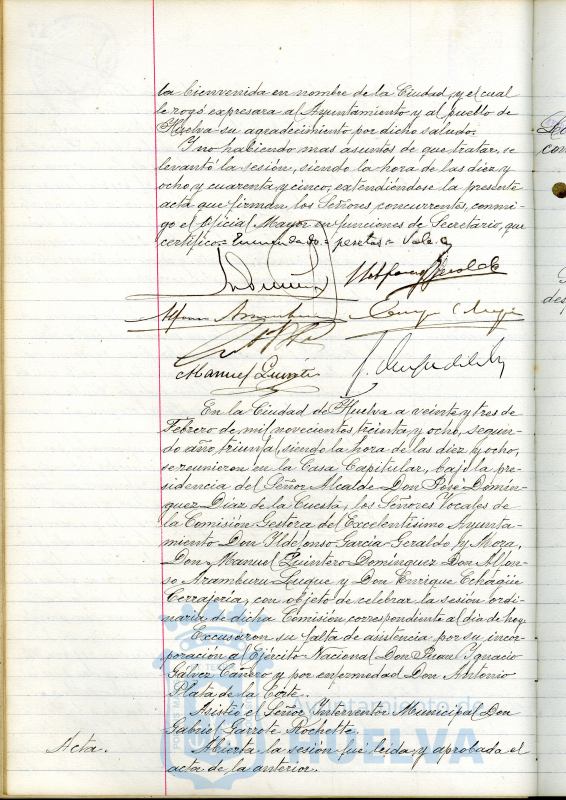 la bienvenida en nombre de la Ciudad, y el cual
le rogó expresara al Ayuntamiento y al pueblo de
Huelva su agradecimiento por dicho saludo.
Y no habiendo mas asuntos de que tratar, se
levantó la sesión, siendo la hora de las diez y
ocho y cuarenta y cinco, extendiéndose la presente
acta que firman los Señores concurrentes, conmi-
go el Oficial Mayor en funciones de Secretario, que
certifico = enmendado = pesetas = Vale =
Manuel Quintero
En la Ciudad de Huelva a veinte y tres de
Febrero de mil novecientos treinta y ocho, segun-
do año triunfal, siendo la hora de las diez y ocho,
se reunieron en la Casa Capitular, bajo la pre-
sidencia del Señor Alcalde Don José Domín-
guez Díaz de la Cuesta, los Señores Vocales de
la Comisión Gestora del Excelentísimo Ayunta-
miento Don Ildefonso García Geraldo y Mora,
Don Manuel Quintero Domínguez Don Alfon-
so Aramburu Luque y Don Enrique Echagüe
Cerrajería, con objeto de celebrar la sesión ordi-
naria de dicha Comisión correspondiente al día de hoy.
Excusaron su falta de asistencia por su incor-
poración al Ejército Nacional Don Juan Ygnacio
Gálvez Cañero y por enfermedad Don Antonio
Plata de la Corte.
Asistió el Señor Interventor Municipal Don
Gabriel Garrote Rochette.
Acta. Abierta la sesión fué leida y aprobada el
acta de la anterior.
Ayuntamiento de
HUELVA